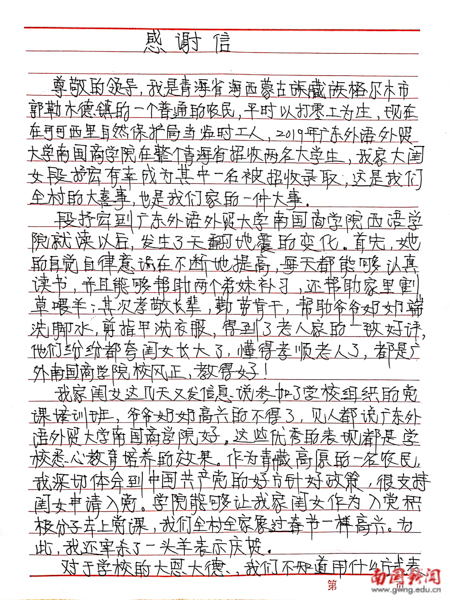 感谢信
尊敬的领导，我是青海省海西蒙古族藏族格尔木市
郭勒木德镇的一个普通的农民，平时以打零工为生，现在
在可可西里自然保护局当临时工人，2019年广东外语外贸
大学南国商学院在整个青海省招收两名大学生，我家大闺
女段抒宏有幸成为其中一名被招收录取，这是我们
全村的大喜事，也是我们家的一件大事。
段抒宏到广东外语外贸大学南国商学院西语学
院就读以后，发生了天翻地覆的变化。首先，她
的自觉自律意识在不断地提高，每天都能够认真
读书，并且能够帮助两个弟妹补习，还帮助家里割
草喂羊；其次孝敬长辈，勤劳肯干，帮助爷爷奶奶端
洗脚水，剪指甲洗衣服，得到了老人家的一致好评，
他们纷纷都夸闺女长大了，懂得孝顺老人了，都是广
外南国商学院校风正，教得好！
我家闺女这几天又发信息说参加了学校组织的党
课培训班，爷爷奶奶高兴的不得了，见人都说广东外
语外贸大学南国商学院好。这些优秀的表现都是学
校悉心教育培养的效果。作为青藏高原的一名农民，
我深切体会到中国共产党的好方针好政策，很支持
闺女申请入党。学院能够让我家闺女作为入党积
极分子去上党课，我们全村全家象过春节一样高兴。为
此，我还宰杀了一头羊表示庆贺。
对于学校的大恩大德、我们不知道用什么方式表
第
南国新闻
news.gwng.edu.cn